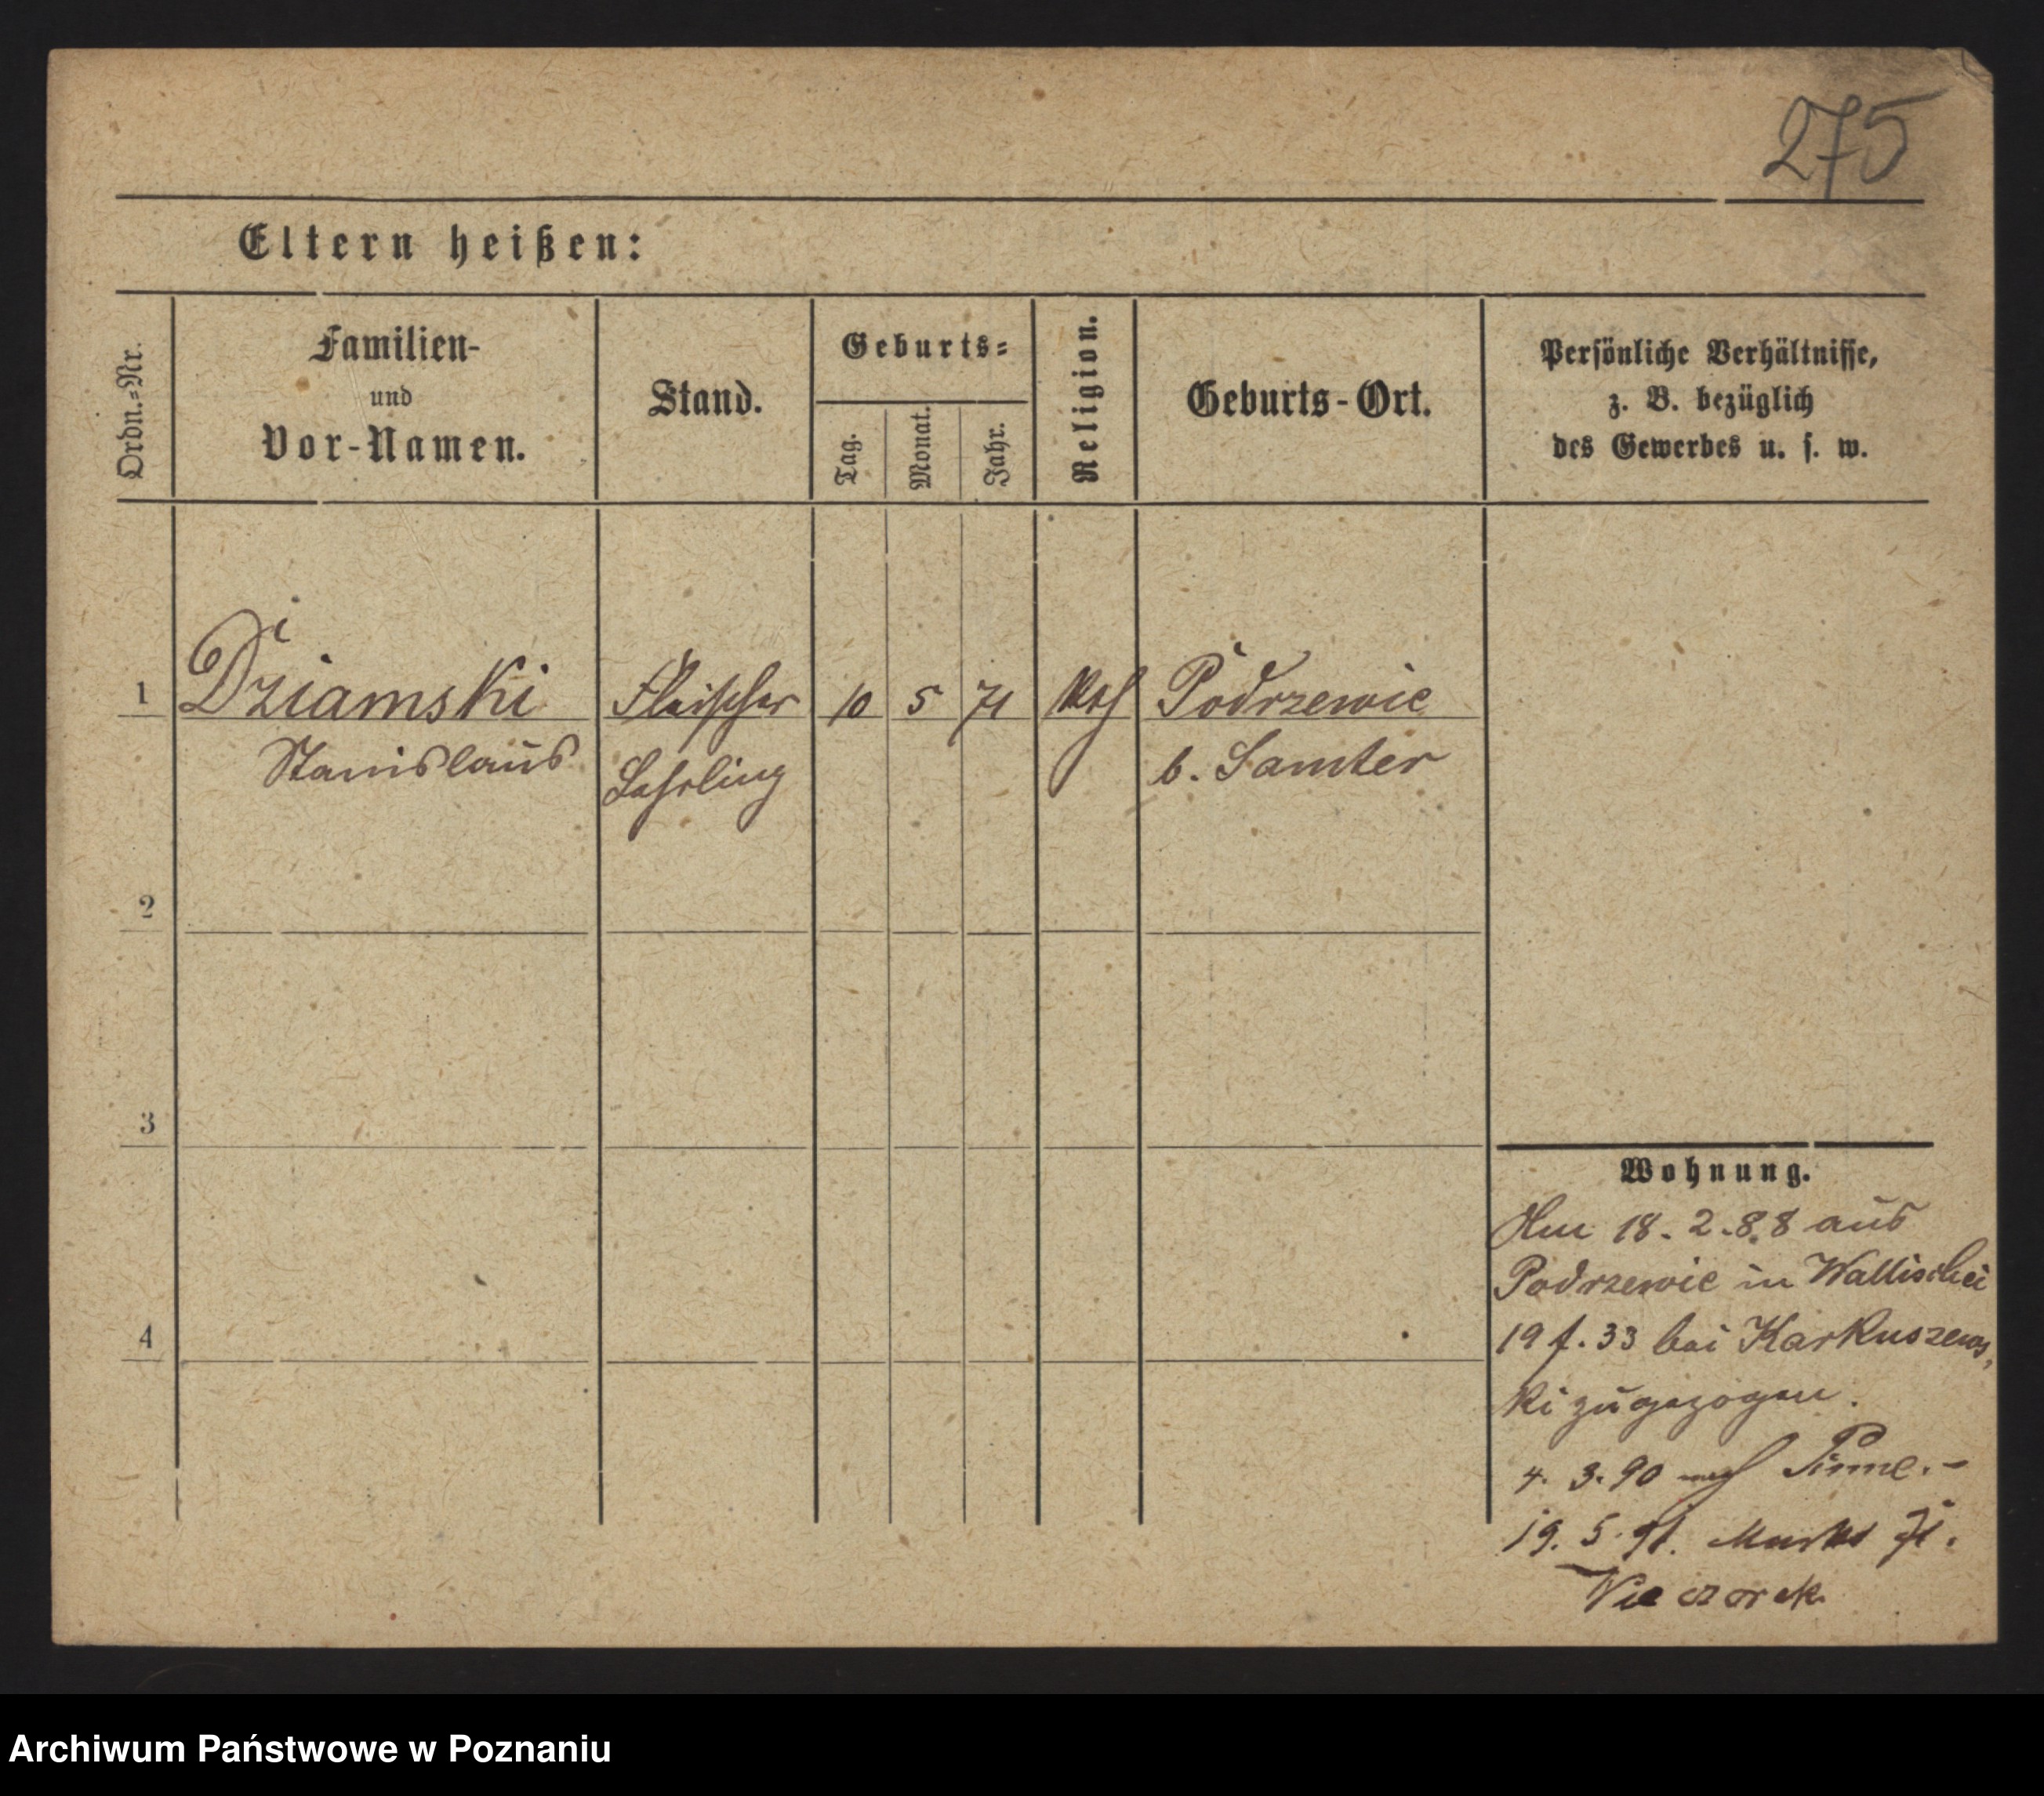 275
Eltern heißen:
Ordn.-Nr.
Familien-
und
Vor-Namen.
Stand.
Geburts-
Tag.
Monat.
Jahr.
Religion.
Geburts-Ort.
Persönliche Verhältnisse,
z. B. bezüglich
des Gewerbes u. s. w.
1 Dziamski Fleischer 10 5 71 Kth Podrzewie
Stanislaus Lehrling b. Samter
2
3
4
Wohnung.
Am 18.2.88 aus
Podrzewie in Wallischei
19 f. 33 bei Karkuszews,
ki zugezogen.
4. 3. 90 nach Pinne.-
19. 5. 91. Markt 71.
Wieczorek
Archiwum Państwowe w Poznaniu